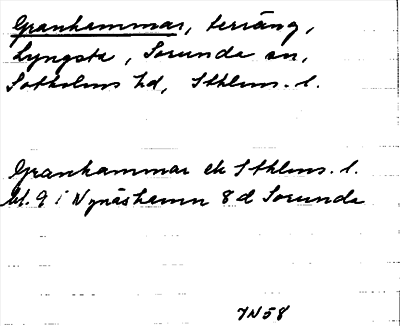 Granhammar, terräng,
Lyngsta, Sorunda sn,
Sotholms hd, Sthlms. l.
Granhammar ek Sthlms. l.
bl. 9 i Nynäshamn 8d Sorunda
JN58